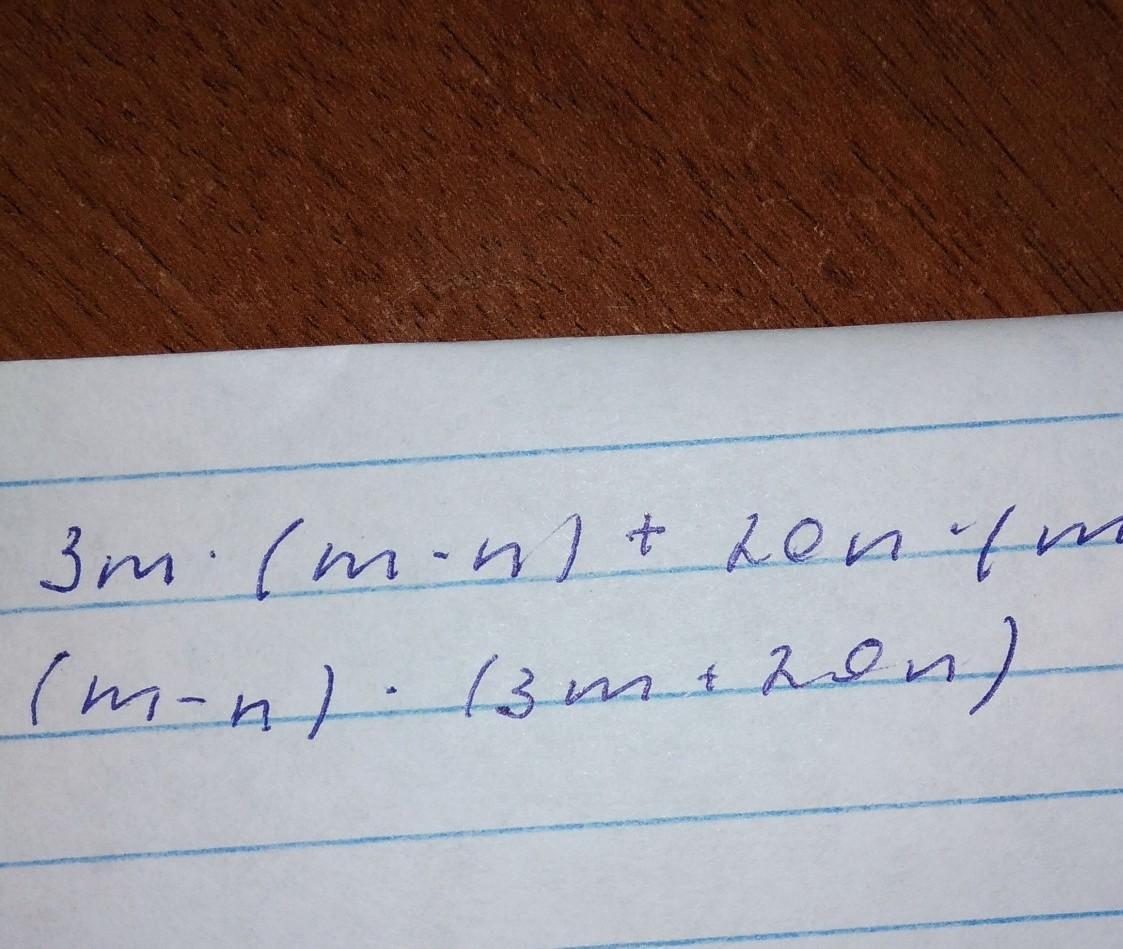 3m · (m - n) + 20n · (m
(m - n) · (3m + 20n)